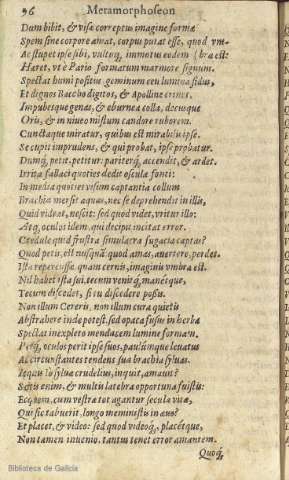 96 Metamorphoseon
Dum bibit, & visæ correptus imagine formæ
Spem sine corpore amat, corpus putat esse, quod vm-
Astupet ipse sibi, vultuq, immotus eodem [bra est:
Hæret, vt è Pario formatum marmore signum.
Spectat humi positus geminum ceu lumina sidus,
Et dignos Baccho digitos, & Apolline crines,
Impubesque genas, & eburnea colla, decusque
Oris, & in niueo mistum candore ruborem.
Cunctáque miratur, quibus est mirabilis ipse.
Se cupit imprudens, & qui probat, ipse probatur.
Dumq́, petit, petitur: pariterq́, accendit, & ardet.
Irrita fallaci quoties dedit oscula fonti:
In medias quoties visum captantia collum
Brachia mersit aquas, nec se deprehendit in illis,
Quid videat, nescit: sed quod videt, vritur illo:
Atq, oculos idem, qui decipit incitat error.
Credule quid frustra simulacra fugacia captas?
Quod petis, est nusquã: quod amas, auertere, perdes.
Ista repercussæ, quam cernis, imaginis vmbra est.
Nil habet ista sui, tecum venitq́, manétque,
Tecum discedet, si tu discedere possis.
Non illum Cereris, non illum cura quietis
Abstrahere inde potest. sed opaca fusus in herba
Spectat inexpleto mendacem lumine formam,
Perq́, oculos perit ipse suos, paulúmque leuatus
Ad circunstantes tendens sua brachia syluas.
Iequis io syluæ crudelius, inquit, amauit?
Scitis enim, & multis latebra opportuna fuistis:
Ecquem, cum vestræ tot agantur secula vitæ,
Qui sic tabuerit, longo meministis in æuo?
Et placet, & video: sed quod videoq́, placétque,
Non tamen inuenio. tantus tenet error amantem.
Quoq́,
Biblioteca de Galicia